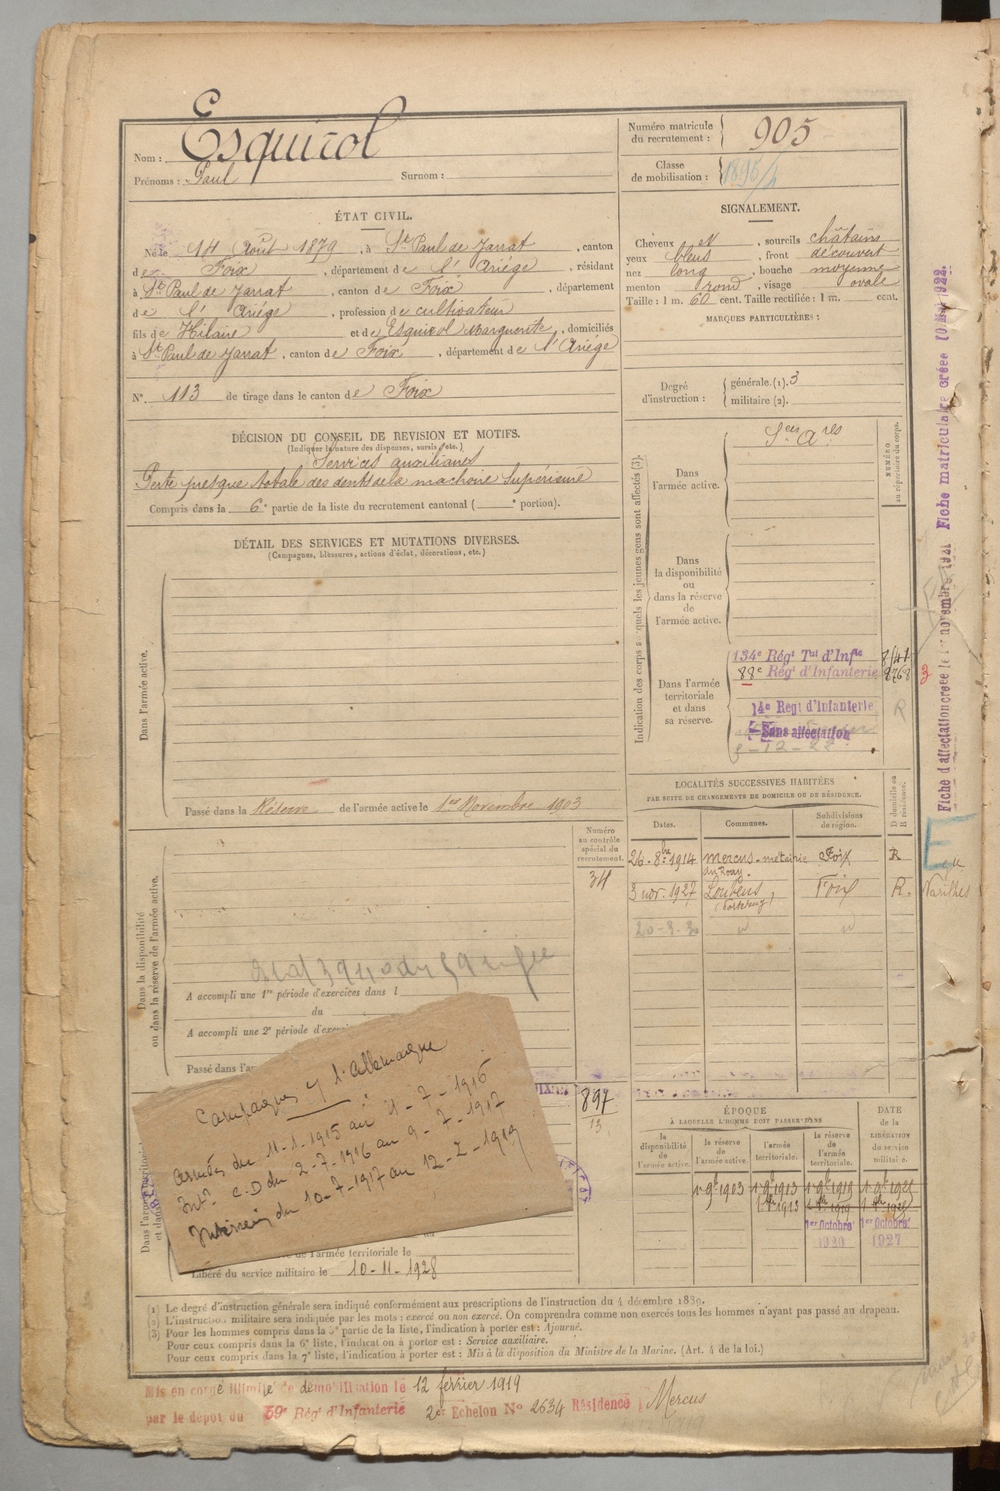 Nom : Esquirol
Prénoms : Paul Surnom :
Numéro matricule du recrutement : 905
Classe de mobilisation : 1896/4
ÉTAT CIVIL.
Né le 14 Août 1879, à St Paul de Jarrat, canton
de Foix, département de l'Ariège, résidant
à St Paul de Jarrat, canton de Foix, département
de l'Ariège, profession de cultivateur
fils de Hilaire et de Esquirol Marguerite, domiciliés
à St Paul de Jarrat, canton de Foix, département de l'Ariège
N° 113 de tirage dans le canton de Foix
SIGNALEMENT.
Cheveux et, sourcils châtains
yeux bleus, front découvert
nez long, bouche moyenne
menton rond, visage ovale
Taille : 1 m. 60 cent. Taille rectifiée : 1 m. cent.
MARQUES PARTICULIÈRES :
Degré d'instruction : générale. (1). 3
militaire (2).
DÉCISION DU CONSEIL DE REVISION ET MOTIFS.
(Indiquer la nature des dispenses, sursis, etc.)
Services auxiliaires
Perte presque totale des dents de la machoire Supérieure
Compris dans la 6e partie de la liste du recrutement cantonal (e portion).
DÉTAIL DES SERVICES ET MUTATIONS DIVERSES.
(Campagnes, blessures, actions d'éclat, décorations, etc.)
Dans l'armée active.
Passé dans la Réserve de l'armée active le 1er Novembre 1903
Dans la disponibilité
ou dans la réserve de l'armée active.
Numéro au contrôle spécial du recrutement.
34
A accompli une 1re période d'exercices dans l
du
A accompli une 2e période d'exer
Passé dans l'ar
Campagnes C/ l'Allemagne
Armées du 11-1-1915 au 1-7-1916
Intr C.D du 2-7-1916 au 9-7-1917
Intérieur du 10-7-1917 au 12-2-1919
897
13
de l'armée territoriale le
Libéré du service militaire le 10-11-1928
Indication des corps auxquels les jeunes gens sont affectés (3).
NUMÉRO au répertoire du corps.
Dans l'armée active.
Sces Ares
Dans la disponibilité ou dans la réserve de l'armée active.
Dans l'armée territoriale et dans sa réserve.
134e Régt Tal d'Infie
88e Régt d'Infanterie 8768
14e Regt d'Infanterie R
Sans affectation
LOCALITÉS SUCCESSIVES HABITÉES
PAR SUITE DE CHANGEMENTS DE DOMICILE OU DE RÉSIDENCE.
Dates. Communes. Subdivisions de région. D domicile ou R résidence.
26-8bre 1914 Mercus-métairie Foix R
3 nov. 1927 Loubens Foix R. Varilhes
20-3-30 " "
ÉPOQUE
À LAQUELLE L'HOMME DOIT PASSER DANS
DATE de la LIBÉRATION du service militaire.
la disponibilité de l'armée active. la réserve de l'armée active. l'armée territoriale. la réserve de l'armée territoriale.
1er 9bre 1903 1er 9bre 1913 1er 9bre 1919 1er 9bre 1925
1er Octobre 1920 1er Octobre 1927
(1) Le degré d'instruction générale sera indiqué conformément aux prescriptions de l'instruction du 4 décembre 1889.
(2) L'instruction militaire sera indiquée par les mots : exercé ou non exercé. On comprendra comme non exercés tous les hommes n'ayant pas passé au drapeau.
(3) Pour les hommes compris dans la 5e partie de la liste, l'indication à porter est : Ajourné.
Pour ceux compris dans la 6e liste, l'indication à porter est : Service auxiliaire.
Pour ceux compris dans la 7e liste, l'indication à porter est : Mis à la disposition du Ministre de la Marine. (Art. 4 de la loi.)
Mis en congé illimité de démobilisation le 12 février 1919
par le dépôt du 59e Régt d'Infanterie 2e Echelon N° 2634 Résidence Mercus
Fiche d'affectation créée le 1er novembre 1921 Fiche matriculaire créée 10 Mai 1922.